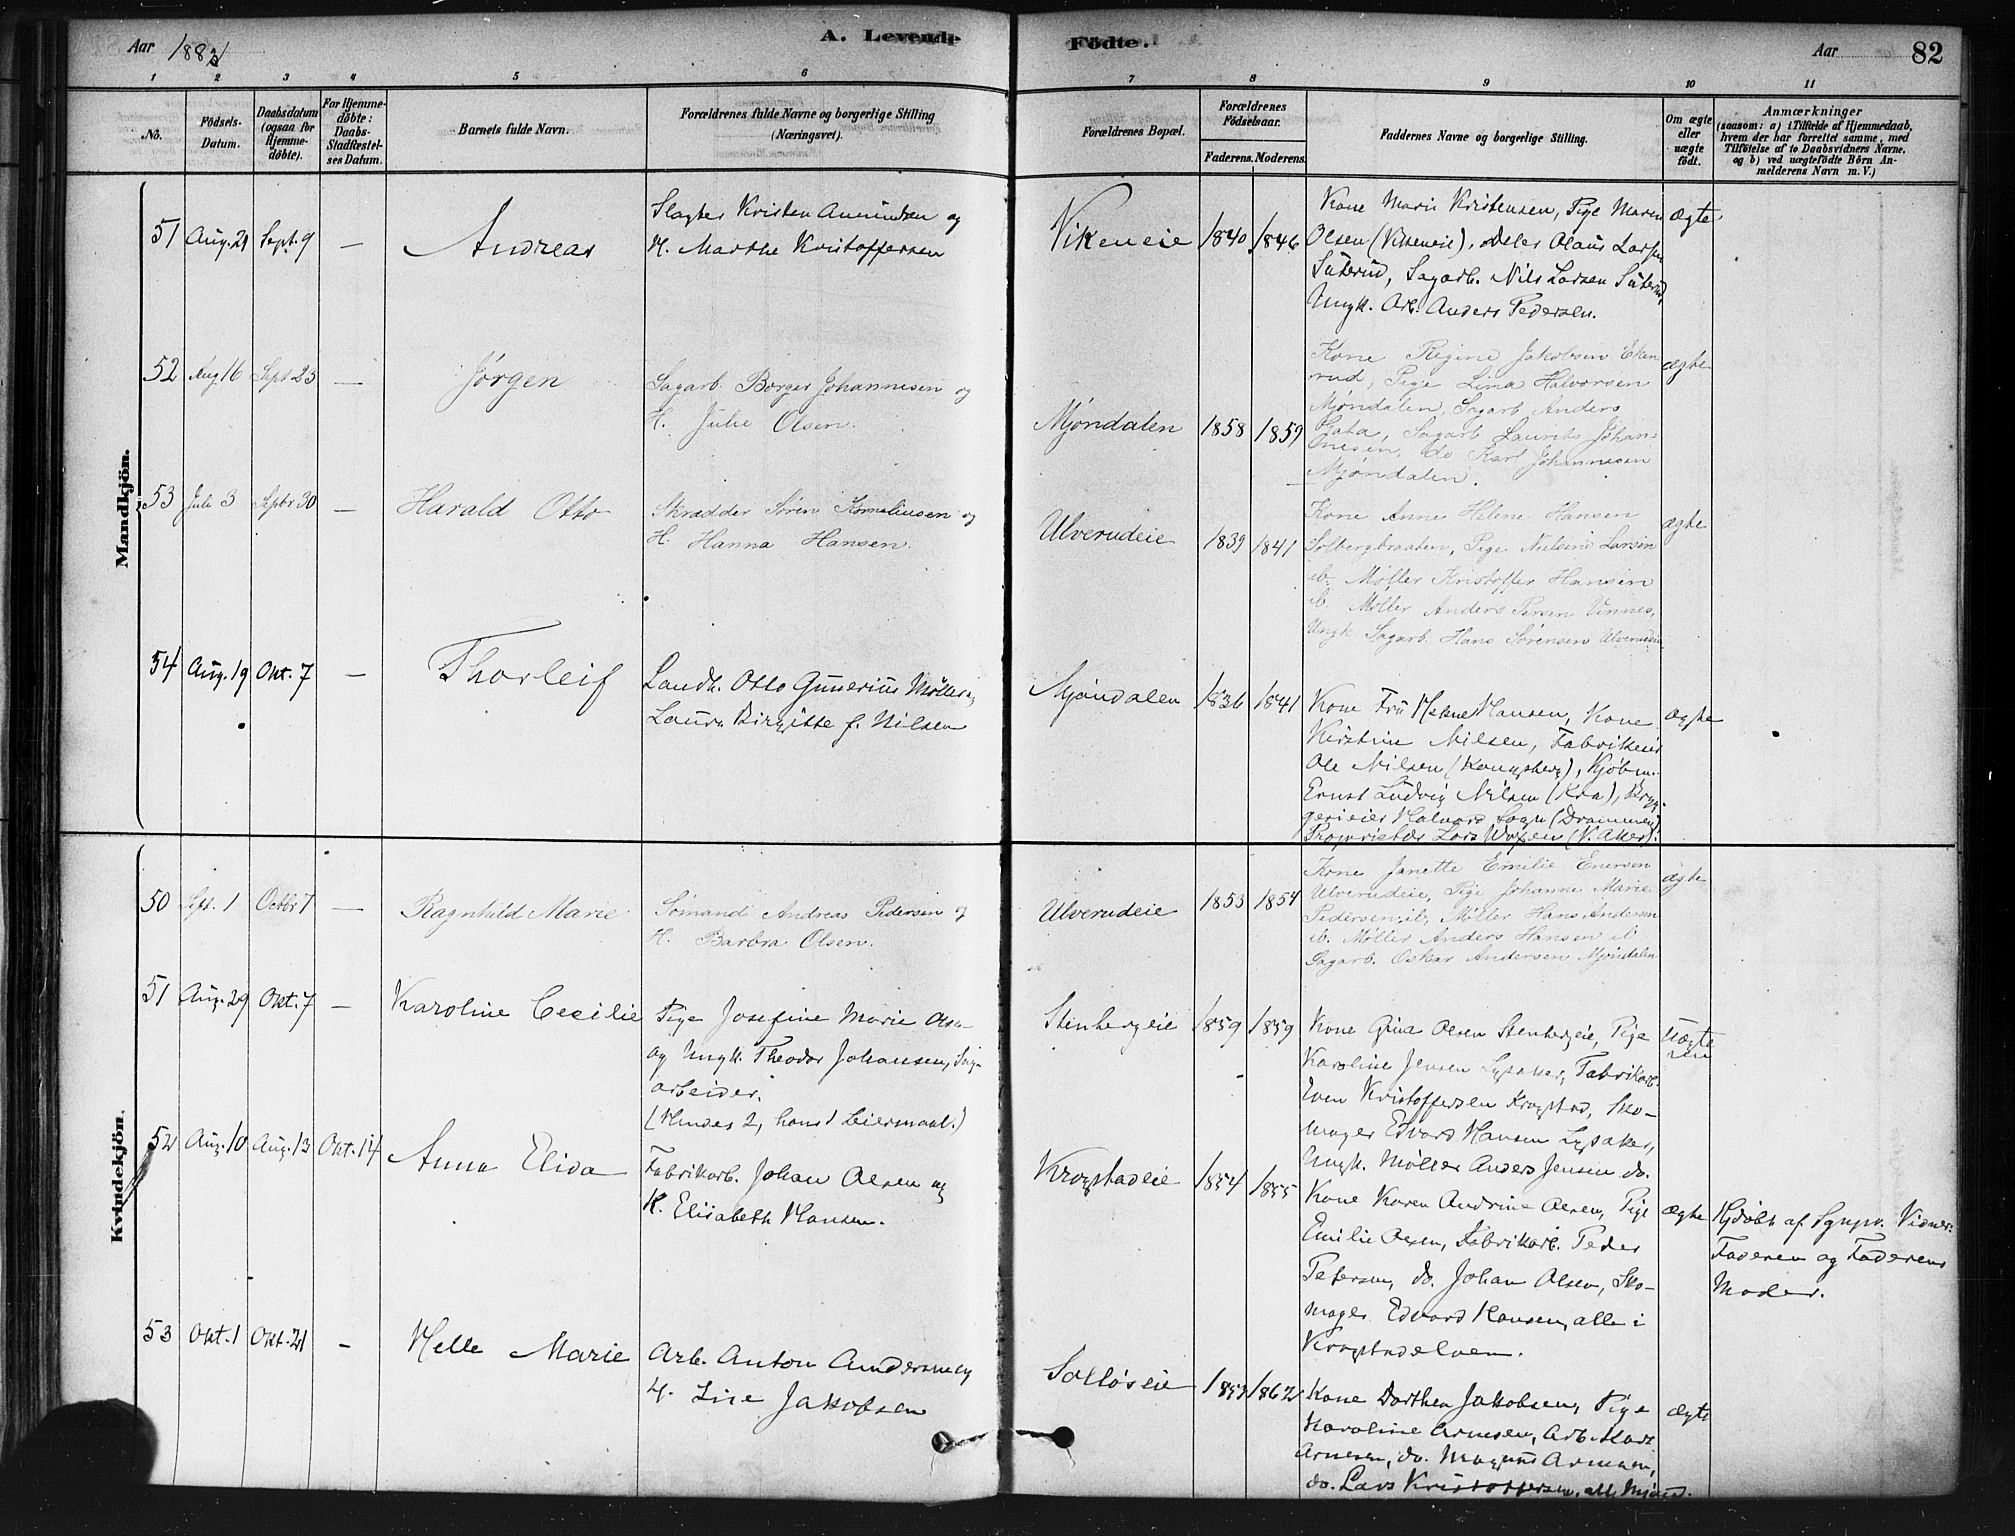 Aar 1883
A. Levende
Födte.
Aar
82
1 2 3 4 5 6 7 8 9 10 11
No.
Födsels-
Datum.
Daabsdatum
(ogsaa for
Hjemme-
døbte).
For Hjemme-
døbte:
Daabs-
Stadfæstel-
ses Datum.
Barnets fulde Navn.
Forældrenes fulde Navne og borgerlige Stilling
(Næringsvei).
Forældrenes Bopæl.
Forældrenes
Födselsaar.
Faderens. Moderens.
Faddernes Navne og borgerlige Stilling.
Om ægte
eller
uægte
födt.
Anmærkninger
(saasom: a) i Tilfælde af Hjemmedaab,
hvem der har forrettet samme, med
Tilföielse af to Daabsvidners Navne,
og b) ved uægtefödte Börn An-
melderens Navn m. V.)
Mandkjön.
51 Aug. 21 Sept. 9 — Andreas
Slagter Kristen Amundsen og
H. Marthe Kristoffersen
Vikeneie 1840 1846
Kone Marie Kristensen, Pige Maren
Olsen (Vikeneie), Olaus Larsen
Sæterud, Sagarb. Nils Larsen Sæterud,
Ungk. Arb. Anders Pedersen.
ægte
52 Aug 16 Sept 23 — Jørgen
Sagarb. Borger Johannesen og
H. Julie Olsen.
Mjøndalen 1858 1859
Kone Regine Jakobsen Eken
rud, Pige Lina Halvorsen
Mjøndalen, Sagarb Anders
Gata, Sagarb Laurits Johan-
nesen, do Karl Johannesen
Mjøndalen.
ægte
53 Juli 3 Septbr 30 — Harald Otto
Skrædder Søren Korneliussen og
H. Hanna Hansen.
Ulverudeie 1839 1841
Kone Anne Helene Hansen
Solbergbraaten, Pige Nielsine Larsen
ib. Møller Kristoffer Hansen
ib. Møller Anders Persen Vinnes,
Ungk. Sagarb. Hans Sørensen Ulverudeie
ægte
54 Aug. 19 Okt. 7 — Thorleif
Landh. Otto Gunerius Møller og
Laura Birgitte f. Nilsen
Mjøndalen 1836 1841
Kone Fru Helene Hansen, Kone
Kirstine Nilsen, Fabrikeier
Ole Nilsen (Kongsberg), Kjøbm.
Ernst Ludvig Nilsen (Kra), Bryg-
gerieier Halvard Sogn (Drammen)
Proprietær Lars (V. Aker).
ægte
Kvindekjön.
50 Sept. 1 Octbr 7 — Ragnhild Marie
Sømand Andreas Pedersen og
H. Barbra Olsen.
Ulverudeie 1853 1854
Kone Janette Emilie Enersen
Ulverudeie, Pige Johanne Marie
Pedersen ib, Møller Hans Andersen
ib. Møller Anders Hansen ib
Sagarb. Oskar Andersen Mjøndalen
ægte
51 Aug. 29 Okt. 7 — Karoline Cecilie
Pige Josefine Marie Olsen
og Ungk. Theodor Johansen, Sag-
arbeider.
(Hendes 2, hans 1 Leiermaal.)
Stenbergeie 1859 1859
Kone Gina Olsen Stenbergeie, Pige
Karoline Jensen Lysaker, Fabrikarb.
Even Kristoffersen Krogstad, Sko-
mager Edvard Hansen Lysaker,
Ungk. Møller Anders Jensen do.
Uægte
52 Aug. 10 Aug. 13 Okt. 14 Anna Elisa
Fabrikarb. Johan Olsen og
H. Elisabeth Hansen.
Krogstadeie 1854 1855
Kone Karen Andrine Olsen, Pige
Emilie Olsen, Fabrikarb. Peder
Petersen, do. Johan Olsen, Sko-
mager Edvard Hansen, alle i
Krogstadelven.
ægte
Hjdøbt af Vidner:
Faderen og Faderens
Moder.
53 Okt. 1 Okt. 21 — Helle Marie
Arb. Anton Andersen og
H. Lise Jakobsen
Solløseie 1853 1862
Kone Dorthea Jakobsen, Pige
Karoline Arnesen, Arb. Karl
Arnesen, do. Magnus Arnesen,
do. Lars Kristoffersen, alle Mjønd.
ægte